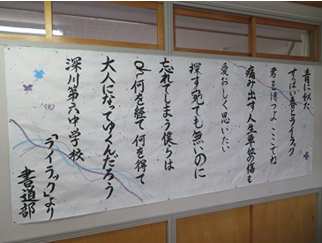 青に似た
すっぱい春とライラック
君を待つよ ここでね
痛み出す 人生単位の傷も
愛おしく思いたい
探す宛ても無いのに
忘れてしまう僕らは
何を経て 何を得て
大人になってゆくんだろう
深川第六中学校
「ライラック」より
書道部